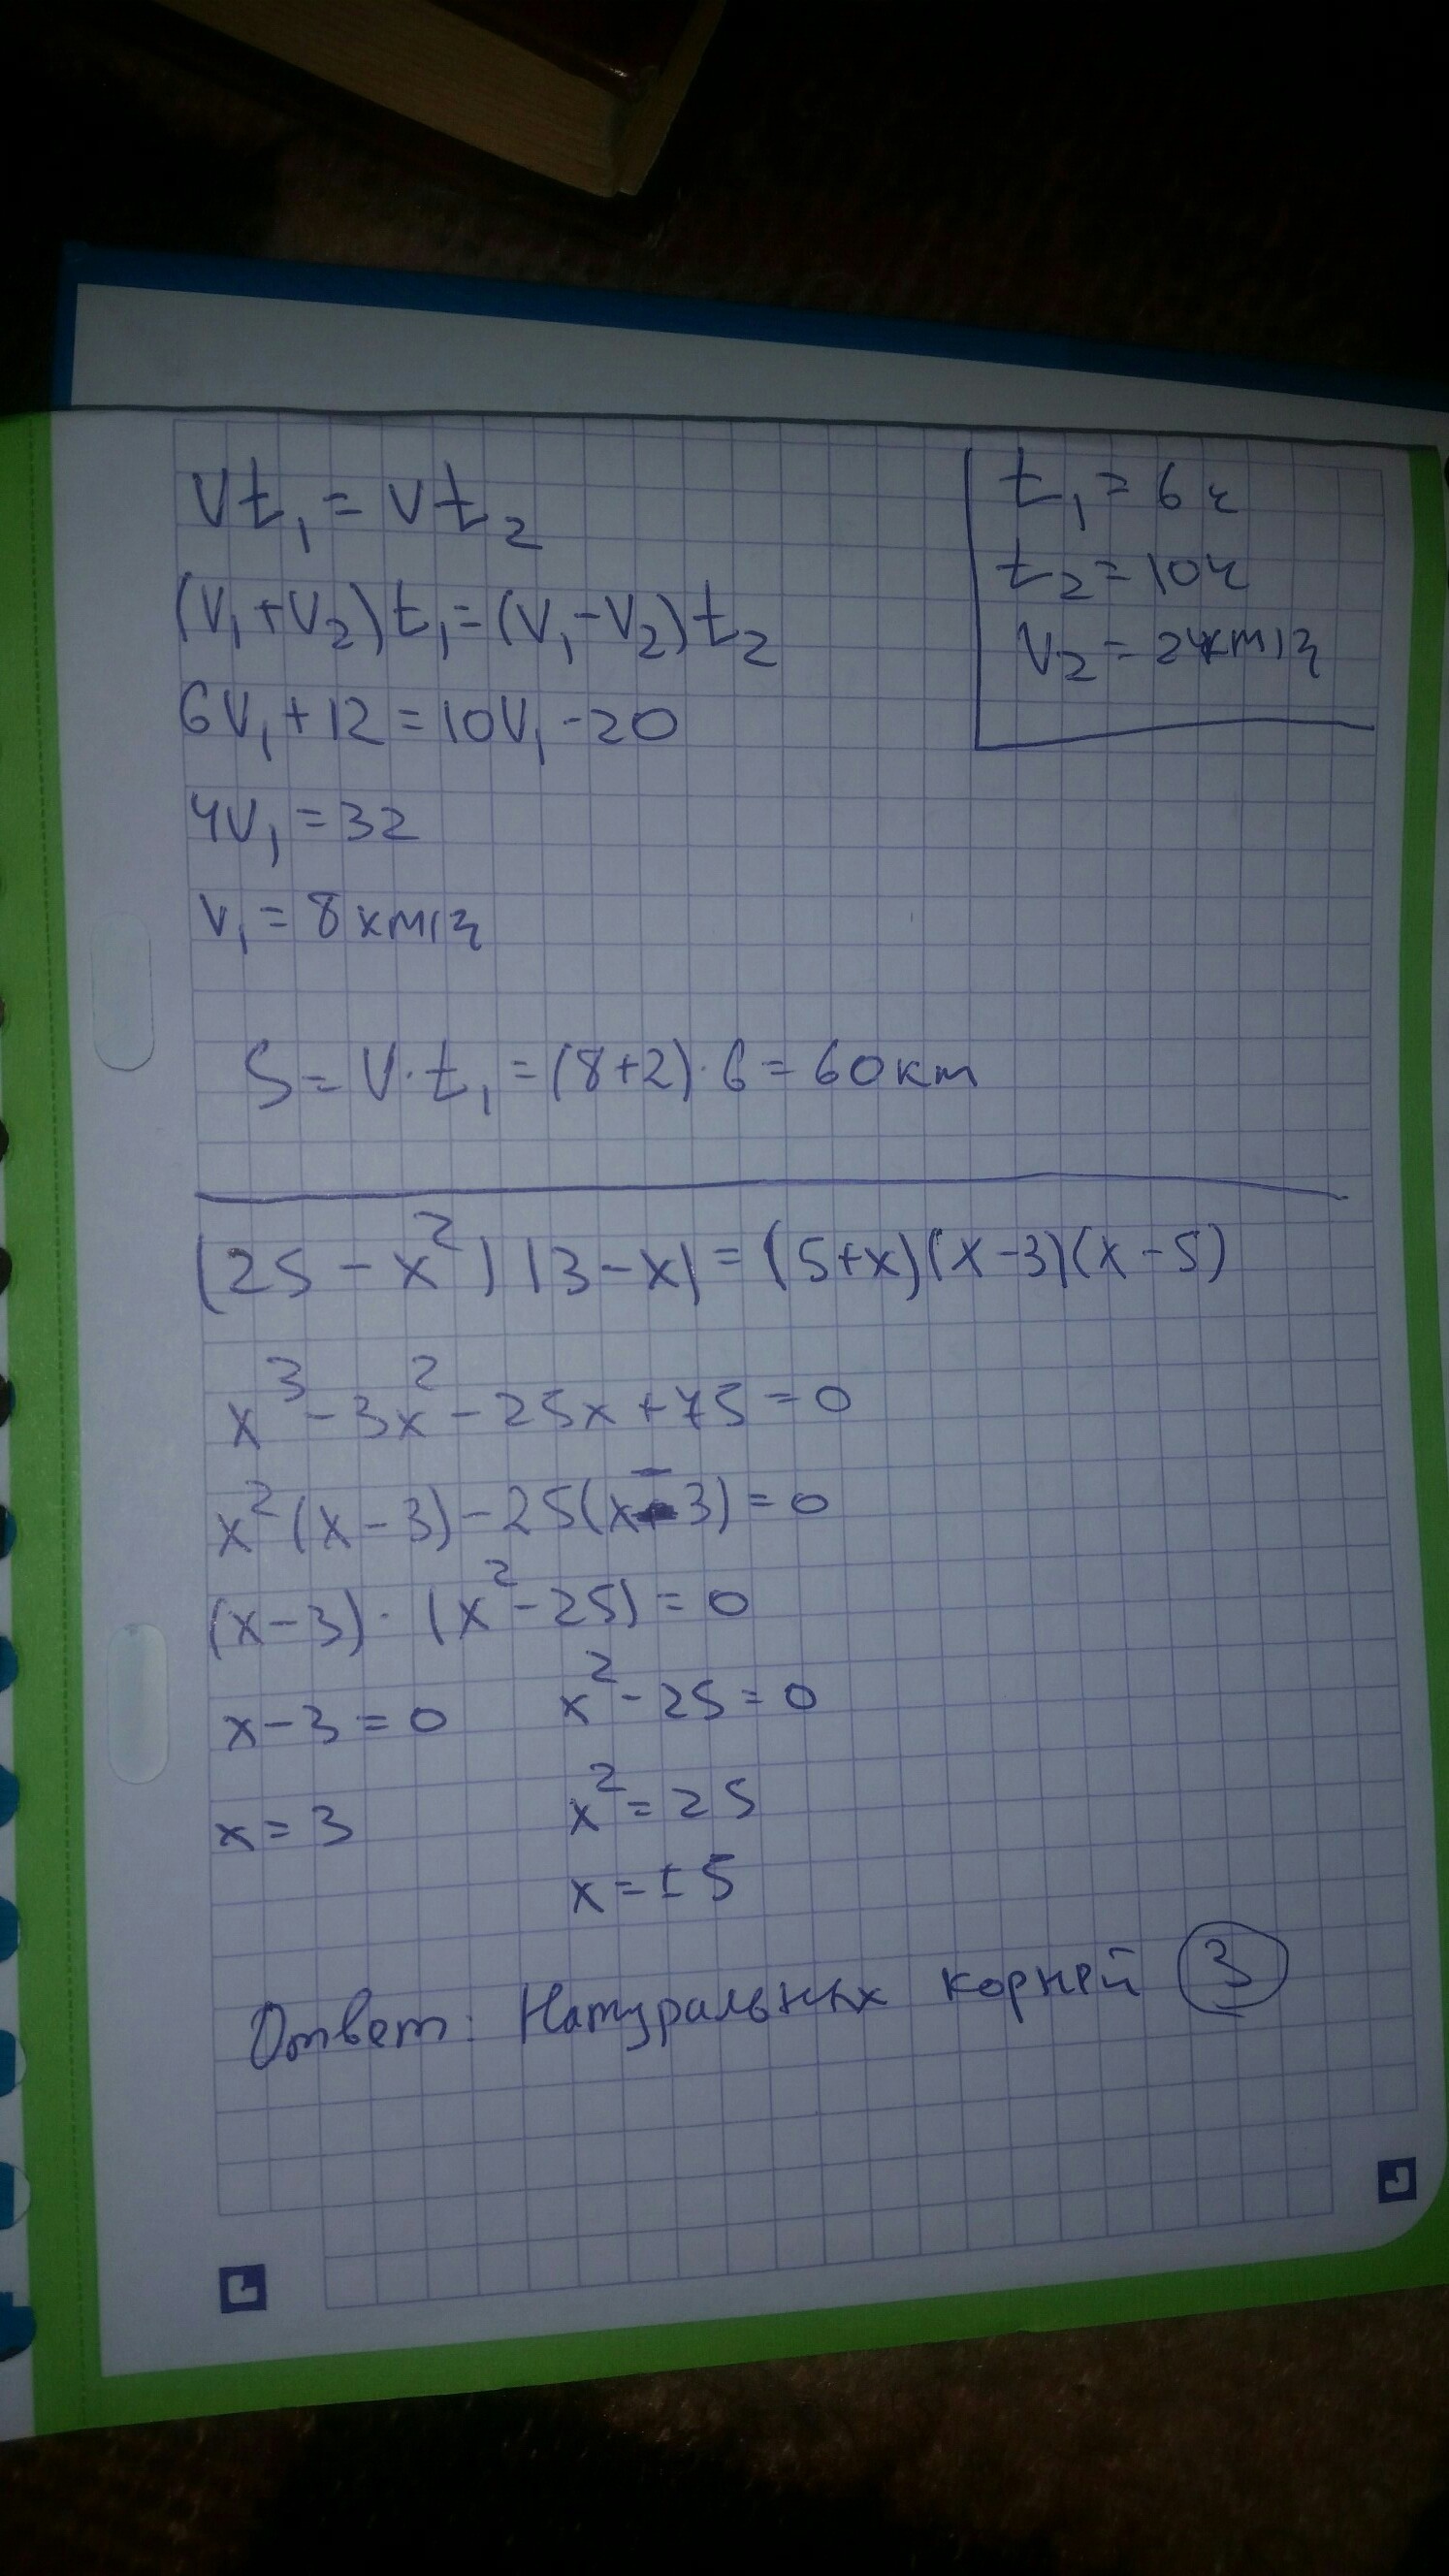 Vt₁ = Vt₂
(V₁+V₂)t₁=(V₁-V₂)t₂
6V₁+12=10V₁-20
4V₁=32
V₁=8км/ч
t₁=6ч
t₂=10ч
V₂=2км/ч
S=V·t₁=(8+2)·6=60км
(25-x²)(3-x)=(5+x)(x-3)(x-5)
x³-3x²-25x+75=0
x²(x-3)-25(x-3)=0
(x-3)·(x²-25)=0
x-3=0 x²-25=0
x=3 x²=25
x=±5
Ответ: Натуральных корней 3